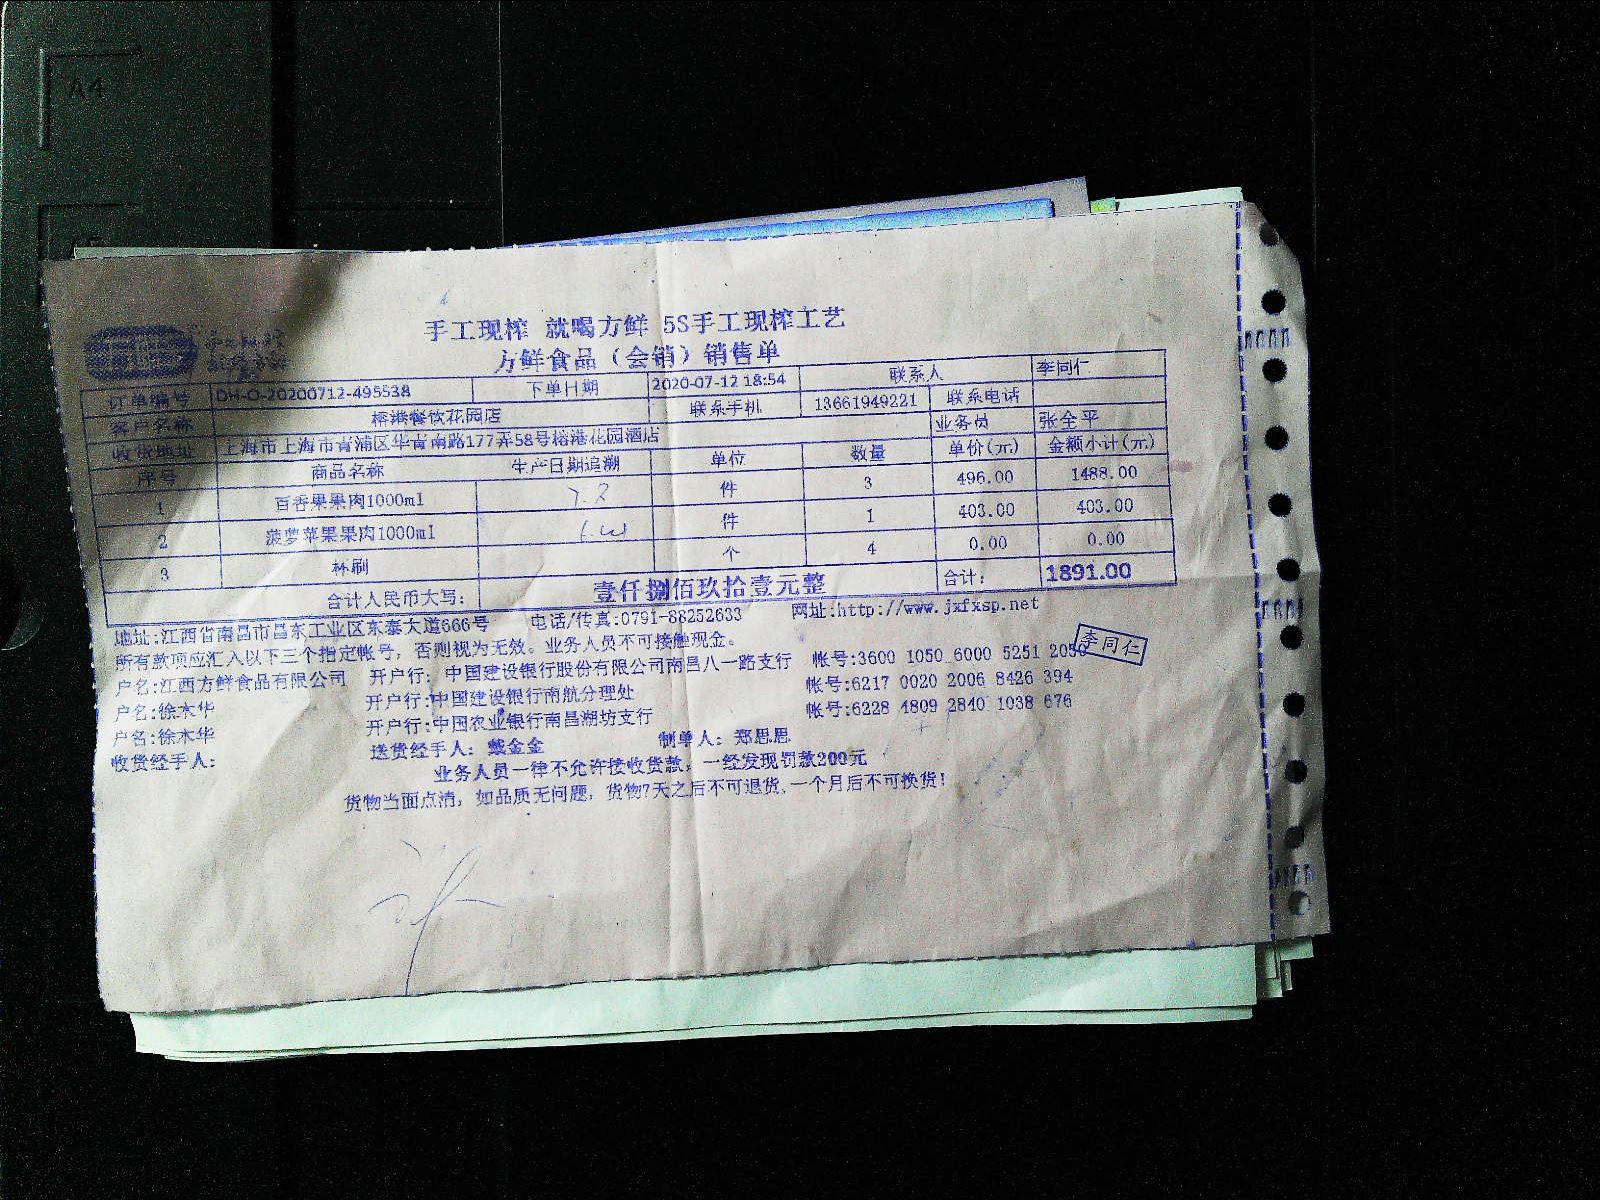 A4
手工现榨 就喝方鲜 5S手工现榨工艺
方鲜食品（会销）销售单
订单编号 DH-O-20200712-495538 下单日期 2020-07-12 18:54 联系人 李同仁
客户名称 榕港餐饮花园店 联系手机 13661949221 联系电话
收货地址 上海市上海市青浦区华青南路177弄58号榕港花园酒店 业务员 张全平
序号 商品名称 生产日期追溯 单位 数量 单价(元) 金额小计(元)
1 百香果果肉1000ml 件 3 496.00 1488.00
2 菠萝苹果果肉1000ml 件 1 403.00 403.00
3 杯刷 个 4 0.00 0.00
合计人民币大写: 壹仟捌佰玖拾壹元整 合计: 1891.00
地址:江西省南昌市昌东工业区东泰大道666号 电话/传真:0791-88252633 网址:http://www.jxfxsp.net
所有款项应汇入以下三个指定帐号，否则视为无效。业务人员不可接触现金。
户名:江西方鲜食品有限公司 开户行: 中国建设银行股份有限公司南昌八一路支行 帐号:3600 1050 6000 5251 2050
李同仁
户名:徐木华 开户行:中国建设银行南航分理处 帐号:6217 0020 2006 8426 394
户名:徐木华 开户行:中国农业银行南昌湖坊支行 帐号:6228 4809 2840 1038 676
收货经手人: 送货经手人: 戴金金 制单人: 郑思思
业务人员一律不允许接收货款，一经发现罚款200元
货物当面点清，如品质无问题，货物7天之后不可退货,一个月后不可换货!